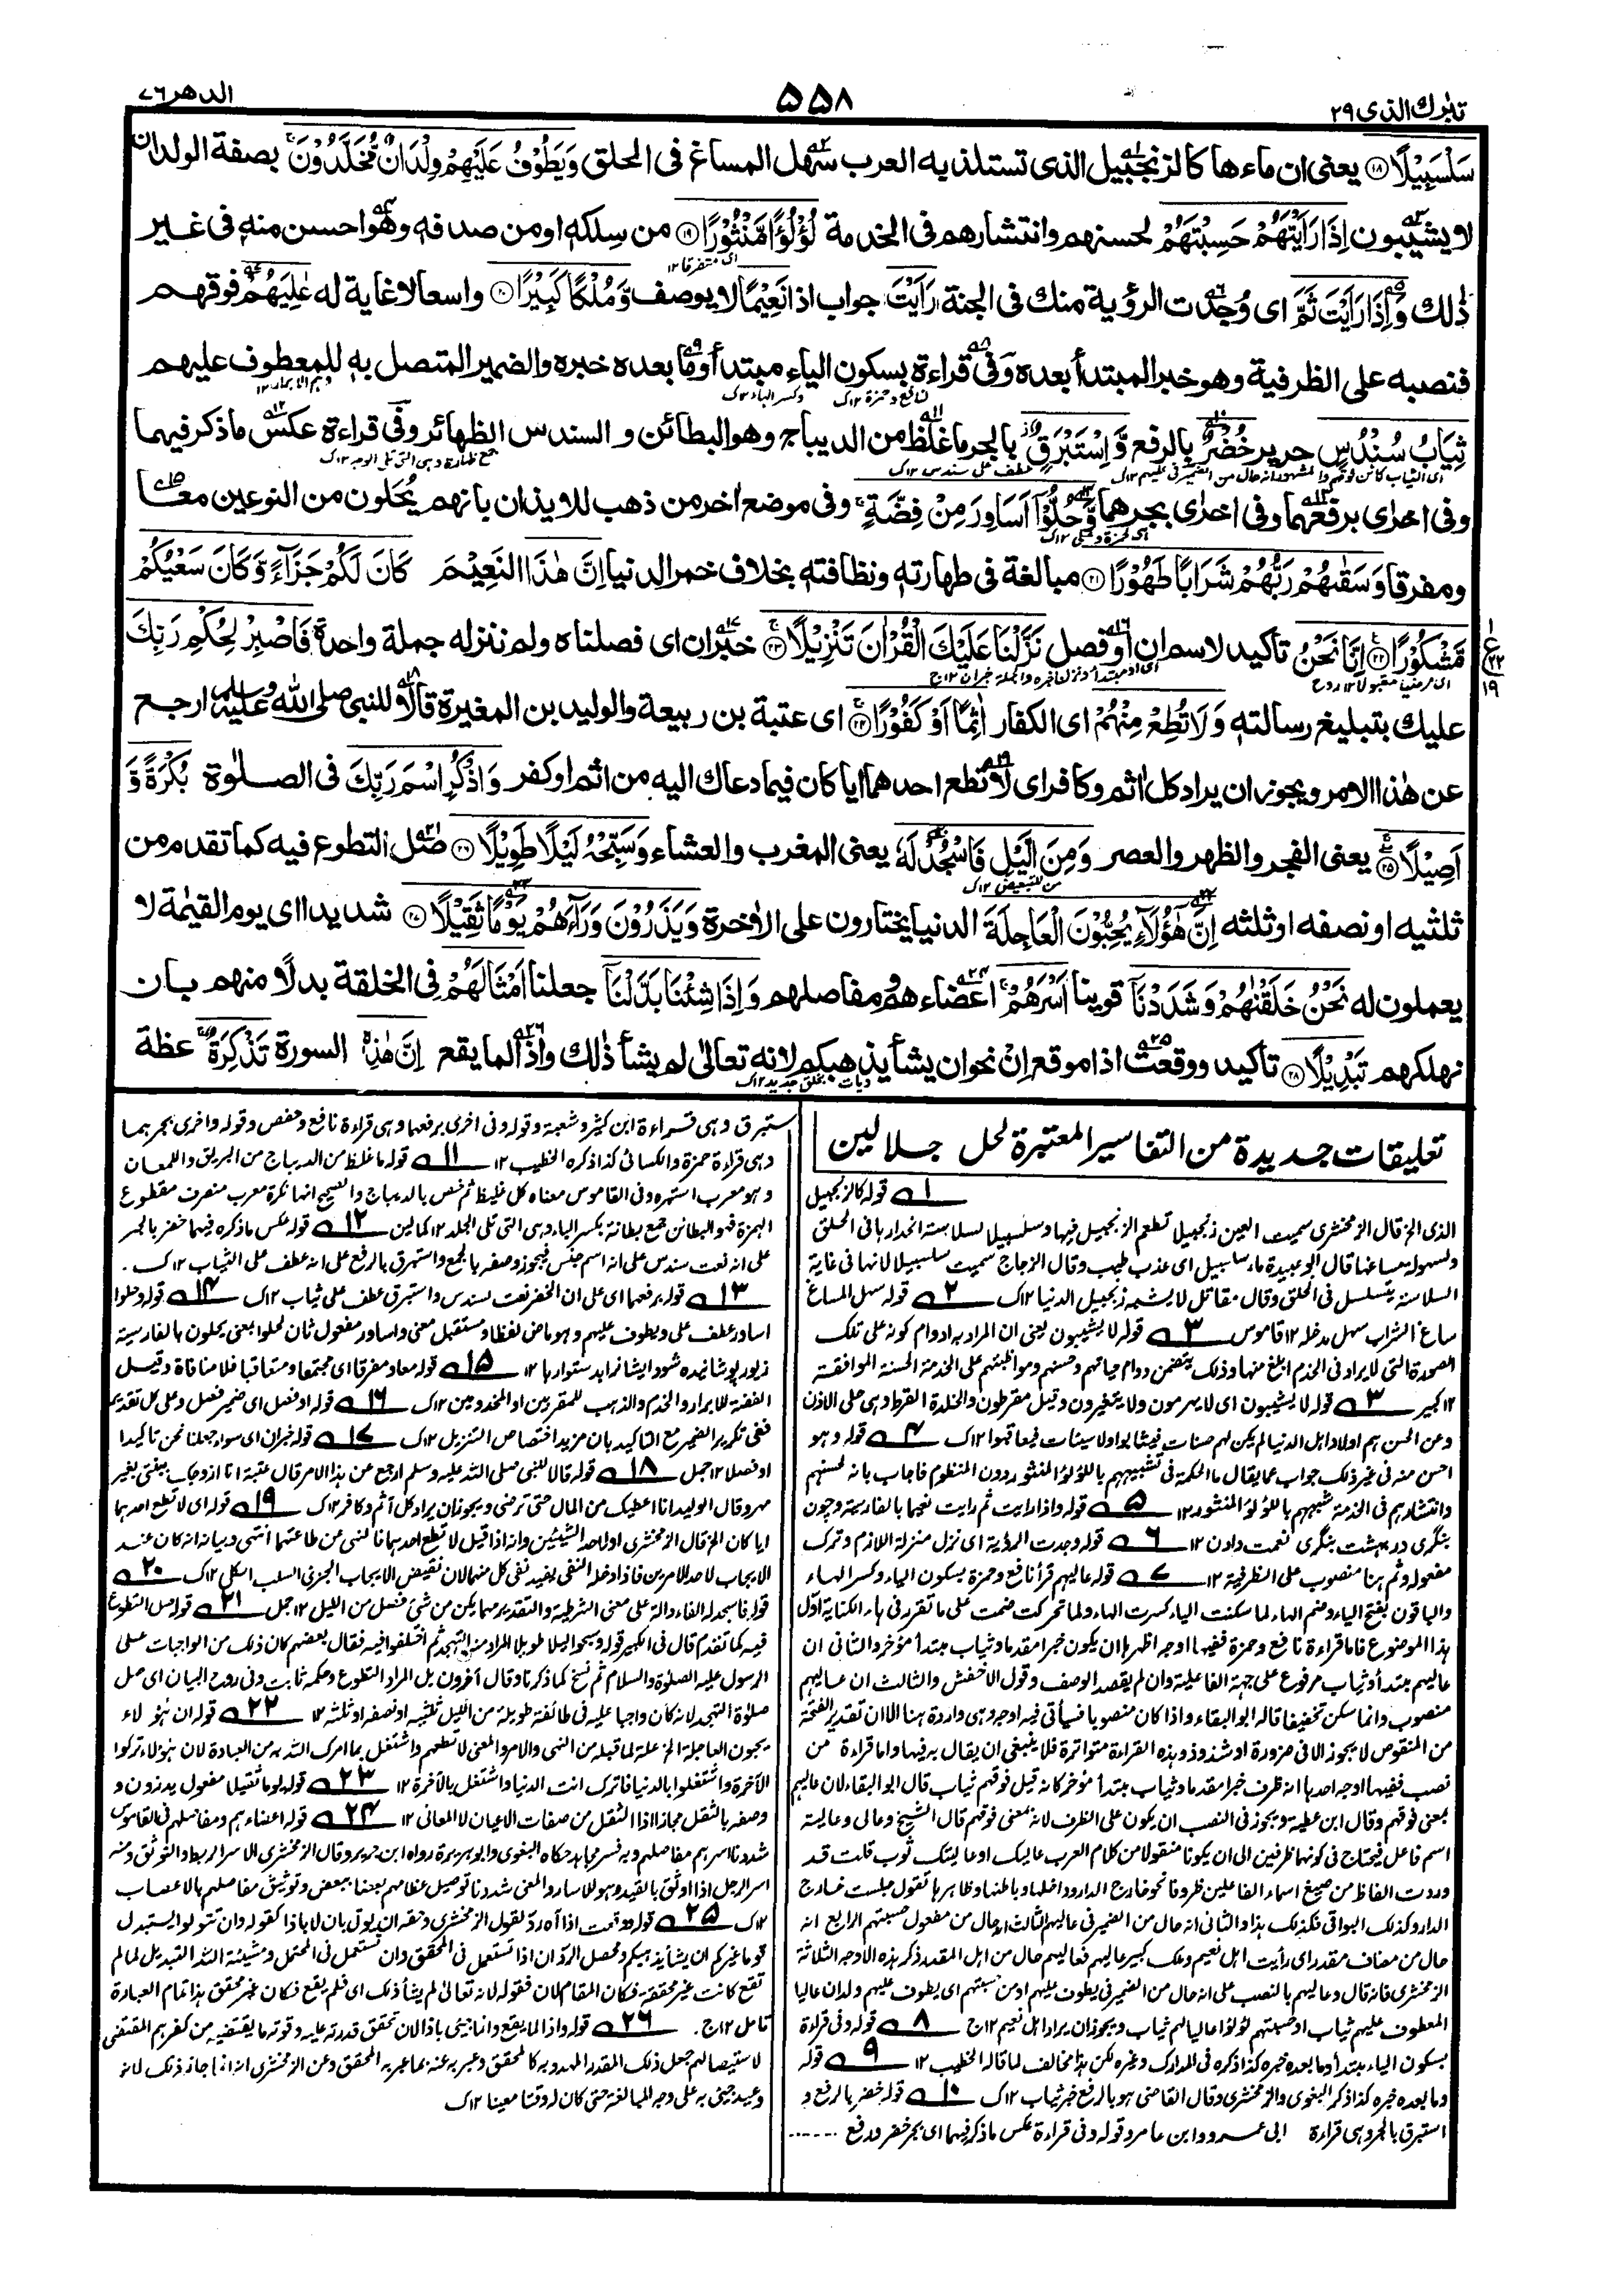 تبٰرك الذی ٢٩
٥٥٨
الدهر ٧٦
سَلْسَبِيْلًا ⑱ يعنی ان ماءها كالزنجبيل الذی تستلذ به العرب سهل المساغ فی الحلق وَيَطُوْفُ عَلَيْهِمْ وِلْدَانٌ مُّخَلَّدُوْنَ بصفة الولدان
لا يشيبون اِذَا رَاَيْتَهُمْ حَسِبْتَهُمْ لحسنهم وانتشارهم فی الخدمة لُؤْلُؤًا مَّنْثُوْرًا ⑲ من سلكه او من صدفه وهو احسن منه فی غير
ای متفرقا ١٢
ذٰلك وَاِذَا رَاَيْتَ ثَمَّ ای وُجدت الرؤية منك فی الجنة رَاَيْتَ جواب اذا نَعِيْمًا لا يوصف وَّمُلْكًا كَبِيْرًا ⑳ واسعا لا غاية له عٰلِيَهُمْ فوقهم
فنصبه علی الظرفية وهو خبر المبتدأ بعده وفی قراءة بسكون الياء مبتدأ وما بعده خبره والضمير المتصل به للمعطوف عليهم
نافع وحمزة ١٢ك وكسر الهاء ١٢ك وهم الابرار ١٢
ثِيَابُ سُنْدُسٍ حرير خُضْرٌ بالرفع وَّاِسْتَبْرَقٌ بالجر ما غلظ من الديباج وهو البطائن و السندس الظهائر وفی قراءة عكس ما ذكر فيهما
عطف علی سندس ١٢ك جمع ظهارة وهی التی تلی الوجه ١٢ك
وفی اخرٰی برفعهما وفی اخرٰی بجرهما وَّحُلُّوْٓا اَسَاوِرَ مِنْ فِضَّةٍ وفی موضع اخر من ذهب للايذان بانهم يُحَلون من النوعين معا
ومفرقا وَسَقٰىهُمْ رَبُّهُمْ شَرَابًا طَهُوْرًا ㉑ مبالغة فی طهارته ونظافته بخلاف خمر الدنيا اِنَّ هٰذَا النعيم كَانَ لَكُمْ جَزَآءً وَّكَانَ سَعْيُكُمْ
مَّشْكُوْرًا ㉒ اِنَّا نَحْنُ تاكيد لاسم ان او فصل نَزَّلْنَا عَلَيْكَ الْقُرْاٰنَ تَنْزِيْلًا ㉓ خبر ان ای فصلناه ولم ننزله جملة واحدة فَاصْبِرْ لِحُكْمِ رَبِّكَ
عليك بتبليغ رسالته وَلَا تُطِعْ مِنْهُمْ ای الكفار اٰثِمًا اَوْ كَفُوْرًا ㉔ ای عتبة بن ربيعة والوليد بن المغيرة قالا للنبی صلی الله عليه وسلم ارجع
عن هٰذا الامر ويجوز ان يراد كل اٰثم وكافر ای لا تطع احدهما ايا كان فيما دعاك اليه من اثم او كفر وَاذْكُرِ اسْمَ رَبِّكَ فی الصلوٰة بُكْرَةً وَّ
اَصِيْلًا ㉕ يعنی الفجر والظهر والعصر وَمِنَ الَّيْلِ فَاسْجُدْ لَهٗ يعنی المغرب والعشاء وَسَبِّحْهُ لَيْلًا طَوِيْلًا ㉖ صَلّ التطوع فيه كما تقدم من
من للتبعيض ١٢ك
ثلثيه او نصفه او ثلثه اِنَّ هٰٓؤُلَآءِ يُحِبُّوْنَ الْعَاجِلَةَ الدنيا يختارون علی الاٰخرة وَيَذَرُوْنَ وَرَآءَهُمْ يَوْمًا ثَقِيْلًا ㉗ شديدا ای يوم القيٰمة لا
يعملون له نَحْنُ خَلَقْنٰهُمْ وَشَدَدْنَآ قوينا اَسْرَهُمْ اعضاءهم ومفاصلهم وَاِذَا شِئْنَا بَدَّلْنَآ جعلنا اَمْثَالَهُمْ فی الخلقة بدلا منهم بان
نهلكهم تَبْدِيْلًا ㉘ تأكيد ووقعت اذا موقع اِنْ نحو ان يشأ يذهبكم لانه تعالٰی لم يشأ ذٰلك واذا لما يقع اِنَّ هٰذِهٖ السورة تَذْكِرَةٌ عظة
تعليقات جديدة من التفاسير المعتبرة لحل جلالين
١ قوله كالزنجبيل
الذی الخ قال الزمخشری سميت العين زنجبيلا لطعم الزنجبيل فيها وسلسبيلا لسلاسة انحدارها فی الحلق
وسهولة مساغها قال ابو عبيدة ماء سلسبيل ای عذب طيب وقال الزجاج سميت سلسبيلا لانها فی غاية
السلاسة يتسلسل فی الحلق وقال مقاتل لا يشبه زنجبيل الدنيا ١٢ك ٢ قوله سهل المساغ
ساغ الشراب سهل مدخله ١٢ قاموس ٣ قوله لا يشيبون يعنی ان المراد به دوام كونه علی تلك
١٢ كبير ٣ قوله لا يشيبون ای لا يهرمون ولا يتغيرون وقيل مقرطون والخلدة القرط وهی حلی الاذن
وعن الحسن هم اولاد اهل الدنيا لم يكن لهم حسنات فيثابوا ولا سيئات فيعاقبوا ١٢ك ٤ قوله وهو
احسن منه فی غير ذلك جواب عما يقال ما الحكمة فی تشبيههم باللؤلؤ المنثور دون المنظوم فاجاب بانه لحسنهم
وانتشارهم فی الخدمة شبههم باللؤلؤ المنثور ١٢ ٥ قوله واذا رايت ثم رايت نعيما بالفارسية وچون
بنگری در بهشت بنگری نعمت دادن ١٢ ٦ قوله وجدت الرؤية ای نزل منزلة اللازم وترك
مفعوله وثم هنا منصوب علی الظرفية ١٢ ٧ قوله عاليهم قرأ نافع وحمزة بسكون الياء وكسر الهاء
والباقون بفتح الياء وضم الهاء لما سكنت الياء كسرت الهاء ولما تحركت ضمت علی ما تقرر فی هاء الكناية اول
هذا الموضوع فاما قراءة نافع وحمزة ففيها اوجه اظهرها ان يكون خبرا مقدما وثياب مبتدأ مؤخر والثانی ان
عاليهم مبتدأ وثياب مرفوع علی جهة الفاعلية وان لم يقصد الوصف وقول الاخفش والثالث ان عاليهم
منصوب وانما سكن تخفيفا قاله ابو البقاء واذا كان منصوبا فسيأتی فيه اوجه وهی واردة هنا الا ان تقدير الفتحة
من المنقوص لا يجوز الا فی ضرورة او شذوذ وهذه القراءة متواترة فلا ينبغی ان يقال به فيها واما قراءة من
نصب ففيها اوجه احدها انه ظرف خبرا مقدما وثياب مبتدأ مؤخر كانه قيل فوقهم ثياب قال ابو البقاء لان عاليهم
بمعنی فوقهم وقال ابن عطية ويجوز فی النصب ان يكون علی الظرف لانه بمعنی فوقهم قال الشيخ وعالی وعالية
اسم فاعل فيحتاج فی كونهما ظرفين الی ان يكونا منقولا من كلام العرب عاليك او عاليتك ثوب قلت قد
وردت الفاظ من صيغ اسماء الفاعلين ظروفا نحو خارج الدار وداخلها وباطنها وظاهرها تقول جلست خارج
الدار وكذلك البواقی فكذلك هذا والثانی انه حال من الضمير فی عاليهم الثالث انه حال من مفعول حسبتهم الرابع انه
حال من مضاف مقدر ای رأيت اهل نعيم وملك كبير عاليهم فعاليهم حال من اهل المقدر ذكر هذه الاوجه الثلاثة
الزمخشری فانه قال وعاليهم بالنصب علی انه حال من الضمير فی يطوف عليهم او من حسبتهم ای يطوف عليهم ولدان عاليا
المعطوف عليهم ثياب او حسبتهم لؤلؤا عاليا لهم ثياب ويجوز ان يراد اهل نعيم ١٢ج ٨ قوله وفی قراءة
بسكون الياء مبتدأ وما بعده خبره كذا ذكره فی المدارك وغيره لكن هذا مخالف لما قاله الخطيب ١٢ ٩ قوله
وما بعده خبره كذا ذكر البغوی والزمخشری وقال القاضی هو بالرفع خبر ثياب ١٢ك ١٠ قوله خضر بالرفع و
استبرق بالجر وهی قراءة ابی عمرو وابن عامر وقوله وفی قراءة عكس ما ذكر فيهما ای بجر خضر ورفع
ستبرق وهی قراءة ابن كثير وشعبة وقوله وفی اخری برفعهما وهی قراءة نافع وحفص وقوله واخری بجرهما
وهی قراءة حمزة والكسائی كذا ذكره الخطيب ١٢ ١١ قوله ما غلظ من الديباج من البريق واللمعان
وهو معرب استبره وفی القاموس معناه كل غليظ ثم خص بالديباج والصحيح انها نكرة معرب منصرف مقطوع
الهمزة فهو البطائن جمع بطانة بكسر الباء وهی التی تلی الجلد ١٢ كمالين ١٢ قوله عكس ما ذكره فيهما خضر بالجر
علی انه نعت سندس علی انه اسم جنس فيجوز وصفه بالجمع واستبرق بالرفع علی انه عطف علی الثياب ١٢ك .
١٣ قوله برفعهما ای علی ان الخضر نعت لسندس واستبرق عطف علی ثياب ١٢ك ١٤ قوله وحلوا
اساور عطف علی ويطوف عليهم وهو ماض لفظا ومستقبل معنی واساور مفعول ثان لحلوا بمعنی يحلون بالفارسية
زيور پوشانيده شود ايشانرا بدستوارها ١٢ ١٥ قوله معا ومفرقا ای مجتمعا ومتعاقبا فلا منافاة وقيل
الفضة للابرار والخدم والذهب للمقربين او المخدومين ١٢ك ١٦ قوله او فصل ای ضمير فصل وعلی كل تقدير
ففی تكرير الضمير مع التاكيد بان مزيد اختصاص التنزيل ١٢ك ١٧ قوله خبر ان ای سواء جعلنا نحن تاكيدا
او فصلا ١٢ جمل ١٨ قوله قالا للنبی صلی الله عليه وسلم ارجع عن هذا الامر قال عتبة انا ازوجك ببنتی بغير
مهر وقال الوليد انا اعطيك من المال حتی ترضی ويجوز ان يراد كل آثم وكافر ١٢ك ١٩ قوله ای لا تطع احدهما
ايا كان الخ قال الزمخشری او لاحد الشيئين وانه اذا قيل لا تطع احدهما فالنهی عن طاعتهما انتهی وبيانه انه كان عند
الايجاب لاحد الامرين فاذا دخل النفی يفيد نفی كل منهما لان نقيض الايجاب الجزئی السلب الكل ١٢ك ٢٠
قوله فاسجد له الفاء دالة علی معنی الشرطية والتقدير مهما يكن من شیء فصل من الليل ١٢ جمل ٢١ قوله صل التطوع
فيه كما تقدم قال فی الكبير قوله وسبحه ليلا طويلا المراد من التهجد ثم اختلفوا فيه فقال بعضهم كان ذلك من الواجبات علی
الرسول عليه الصلوة والسلام ثم نسخ كما ذكرنا وقال آخرون بل المراد التطوع وحكمه ثابت وفی روح البيان ای صل
صلوة التهجد لانه كان واجبا عليه فی طائفة طويلة من الليل ثلثيه او نصفه او ثلثه ١٢ ٢٢ قوله ان هؤلاء
يحبون العاجلة الخ علة لما قبله من النهی والامر والمعنی لا تطعهم واشتغل بما امرك الله به من العبادة لان هؤلاء تركوا
الآخرة واشتغلوا بالدنيا فاترك انت الدنيا واشتغل بالآخرة ١٢ ٢٣ قوله يوما ثقيلا مفعول يذرون و
وصفه بالثقل مجازا اذ الثقل من صفات الاعيان لا المعانی ١٢ ٢٤ قوله اعضاءهم ومفاصلهم فی القاموس
شددنا اسرهم مفاصلهم وبه فسر مجاهد حكاه البغوی وابو هريرة رواه ابن جرير وقال الزمخشری الاسر الربط والتوثق ومنه
اسر الرجل اذا اوثق بالقيد وهو للاسار والمعنی شددنا توصيل عظامهم بعضها ببعض وتوثيق مفاصلهم بالاعصاب
١٢ك ٢٥ قوله ووقعت اذا آه رد لقول الزمخشری وحقه ان يؤتی بان لا باذا كقوله وان تتولوا يستبدل
قوما غيركم ان يشأ يذهبكم ومحصل الرد ان اذا تستعمل فی المحقق وان تستعمل فی المحتمل ومشيئة الله التبديل لما لم
تقع كانت غير محققة فكان المقام لان فقوله لانه تعالی لم يشأ ذلك ای فلم يقع فكان غير محقق هذا تمام العبارة
تامل ١٢ج . ٢٦ قوله واذا لما يقع وانما جیء باذا لان تحقق قدرته عليه وقوته ما يقتضيه من كفرهم المقتضی
لاستيصالهم جعل ذلك المقدر المهدد به كالمحقق وعبر به عنه بما عبر به المحقق وعن الزمخشری انه انما جاز ذلك لانه
وعيد جیء به علی وجه المبالغة حتی كان له وقتا معينا ١٢ك